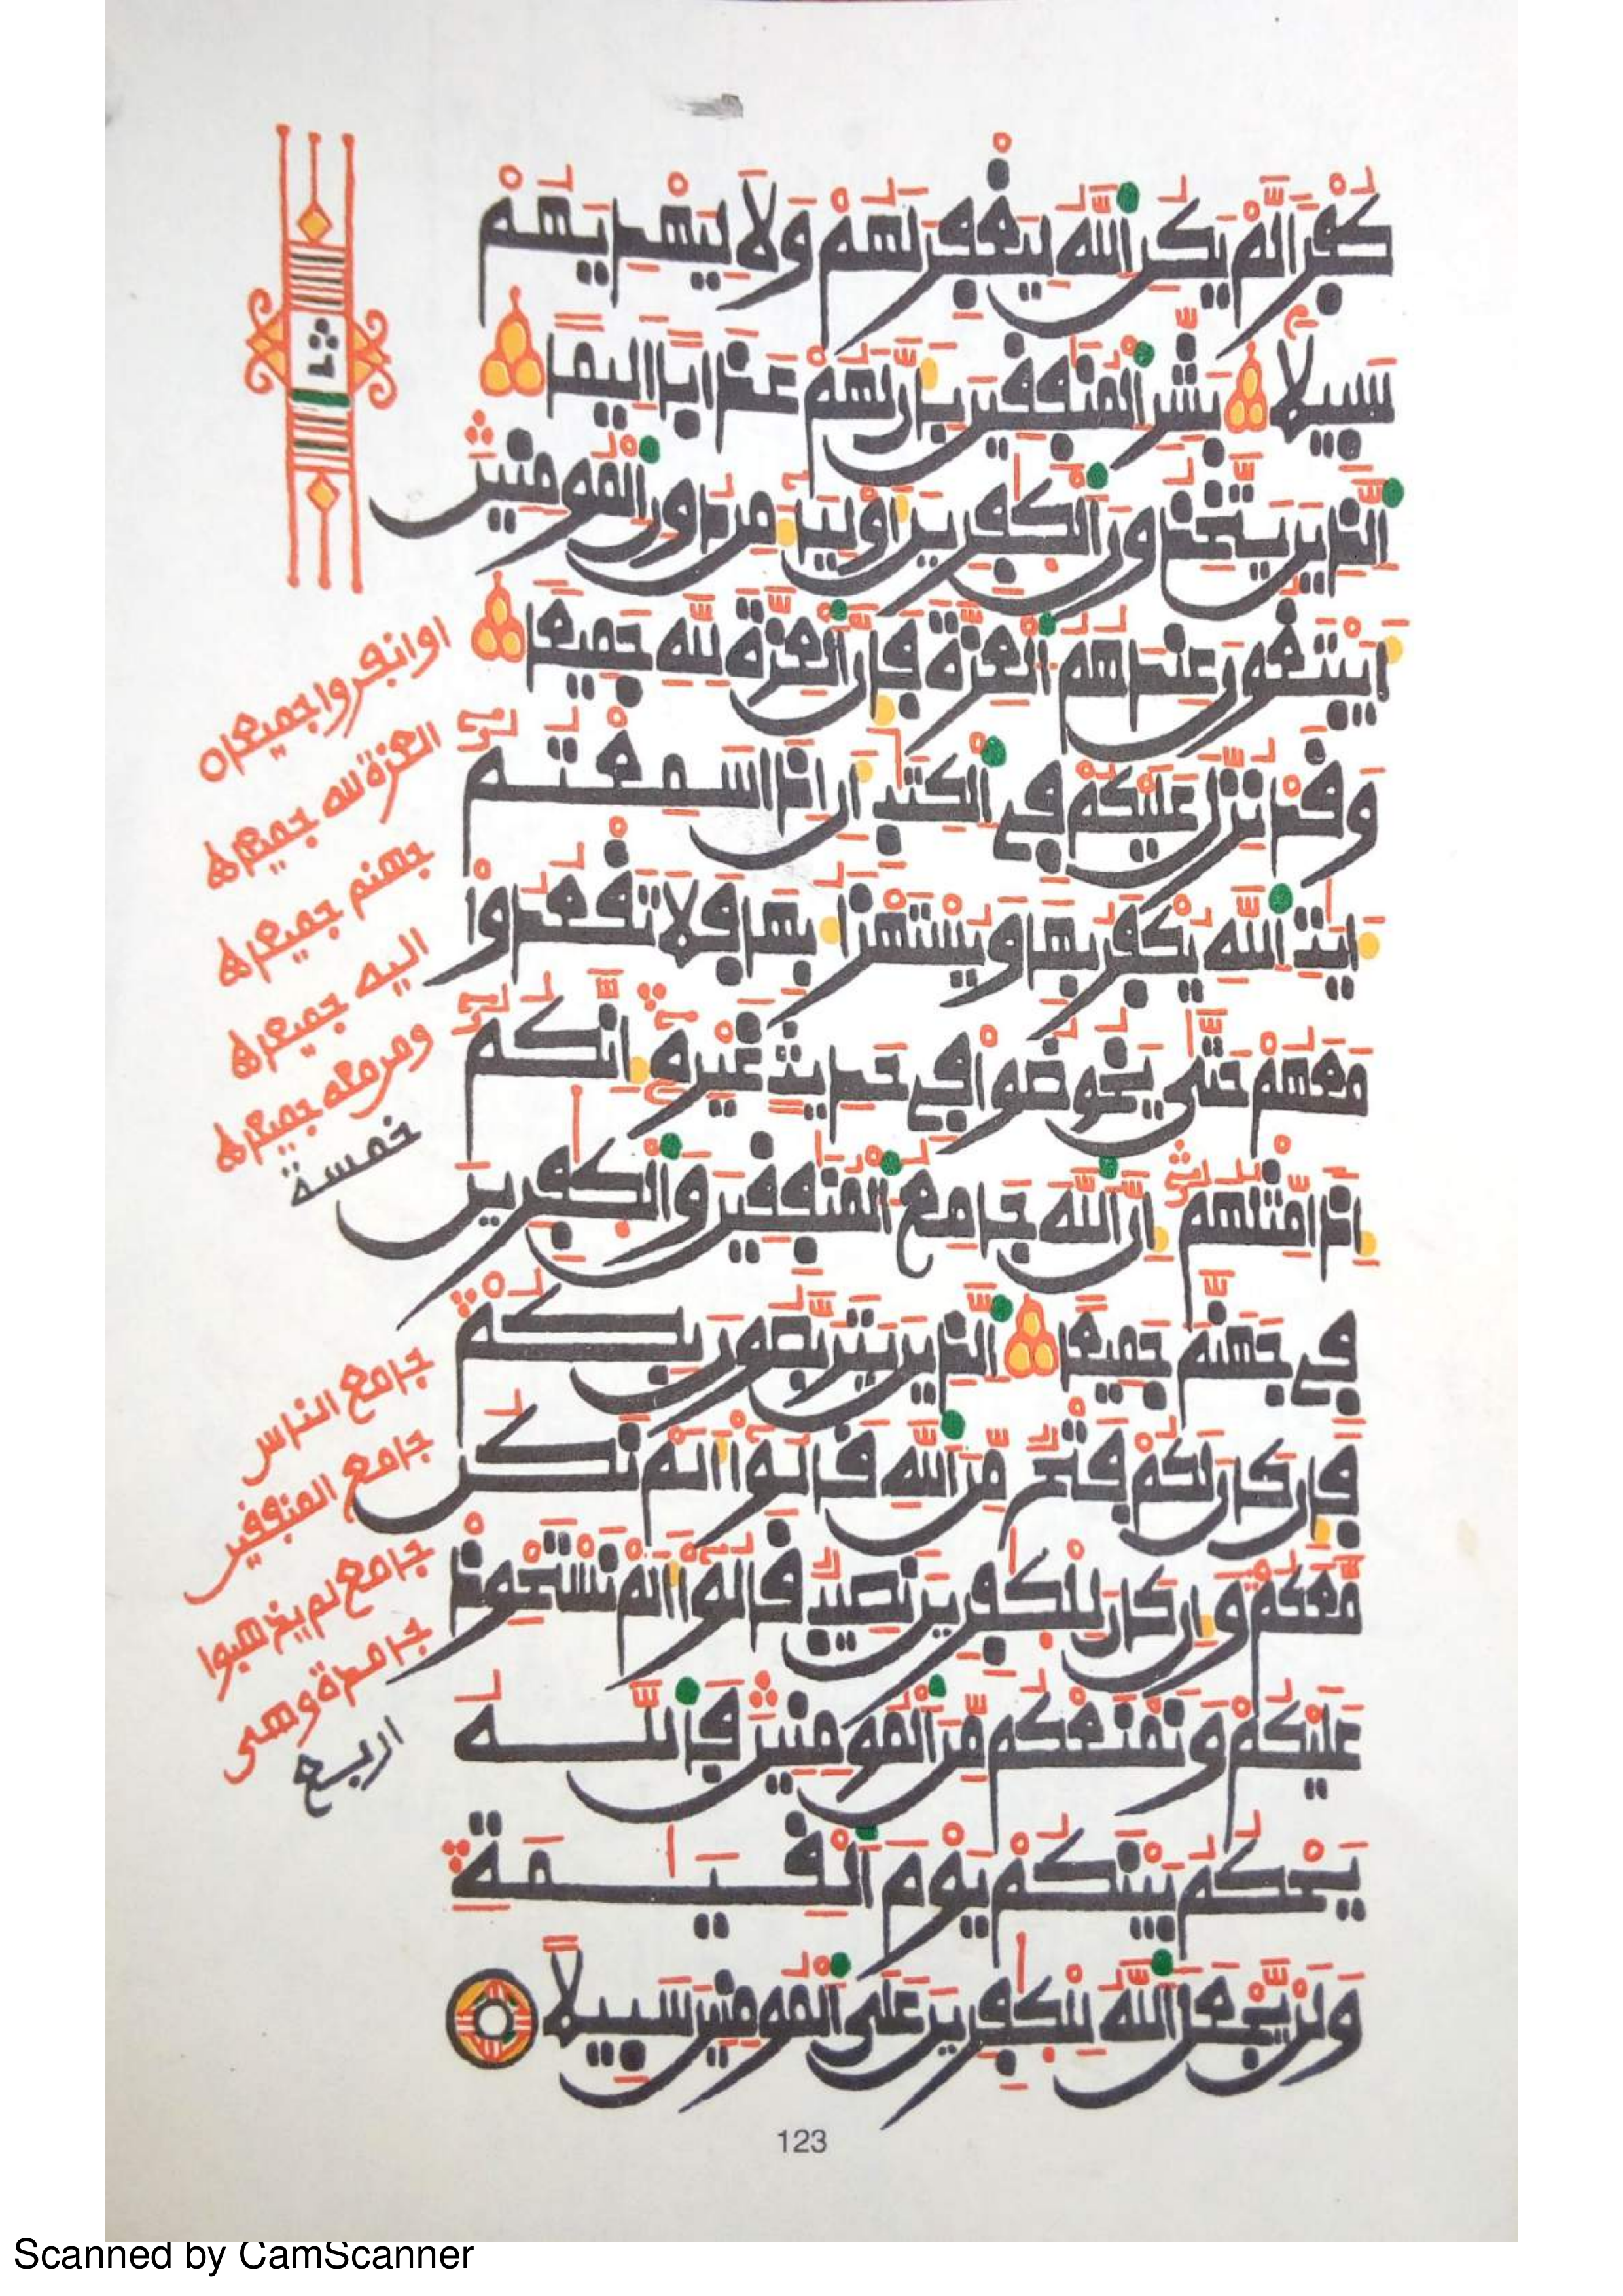 كُفْرًا لَّمْ يَكُنِ اللَّهُ لِيَغْفِرَ لَهُمْ وَلَا لِيَهْدِيَهُمْ
سَبِيلًا بَشِّرِ الْمُنَٰفِقِينَ بِأَنَّ لَهُمْ عَذَابًا أَلِيمًا
الَّذِينَ يَتَّخِذُونَ الْكَٰفِرِينَ أَوْلِيَآءَ مِن دُونِ الْمُومِنِينَ
أَيَبْتَغُونَ عِندَهُمُ الْعِزَّةَ فَإِنَّ الْعِزَّةَ لِلَّهِ جَمِيعًا
وَقَدْ نُزِّلَ عَلَيْكُمْ فِي الْكِتَٰبِ أَنْ إِذَا سَمِعْتُمْ
ءَايَٰتِ اللَّهِ يُكْفَرُ بِهَا وَيُسْتَهْزَأُ بِهَا فَلَا تَقْعُدُوا
مَعَهُمْ حَتَّىٰ يَخُوضُوا فِي حَدِيثٍ غَيْرِهِ إِنَّكُمْ
إِذًا مِّثْلُهُمْ إِنَّ اللَّهَ جَامِعُ الْمُنَٰفِقِينَ وَالْكَٰفِرِينَ
فِي جَهَنَّمَ جَمِيعًا الَّذِينَ يَتَرَبَّصُونَ بِكُمْ
فَإِن كَانَ لَكُمْ فَتْحٌ مِّنَ اللَّهِ قَالُوا أَلَمْ نَكُن
مَّعَكُمْ وَإِن كَانَ لِلْكَٰفِرِينَ نَصِيبٌ قَالُوا أَلَمْ نَسْتَحْوِذْ
عَلَيْكُمْ وَنَمْنَعْكُم مِّنَ الْمُومِنِينَ فَاللَّهُ
يَحْكُمُ بَيْنَكُمْ يَوْمَ الْقِيَٰمَةِ
وَلَن يَجْعَلَ اللَّهُ لِلْكَٰفِرِينَ عَلَى الْمُومِنِينَ سَبِيلًا
اوانفروا جميعا
العزة لله جميعا
جهنم جميعا
اليه جميعا
ومن معه جميعا
خمسة
جامع الناس
جامع المنفقين
جامع لم يذهبوا
جامدة وهى
اربع
123
Scanned by CamScanner